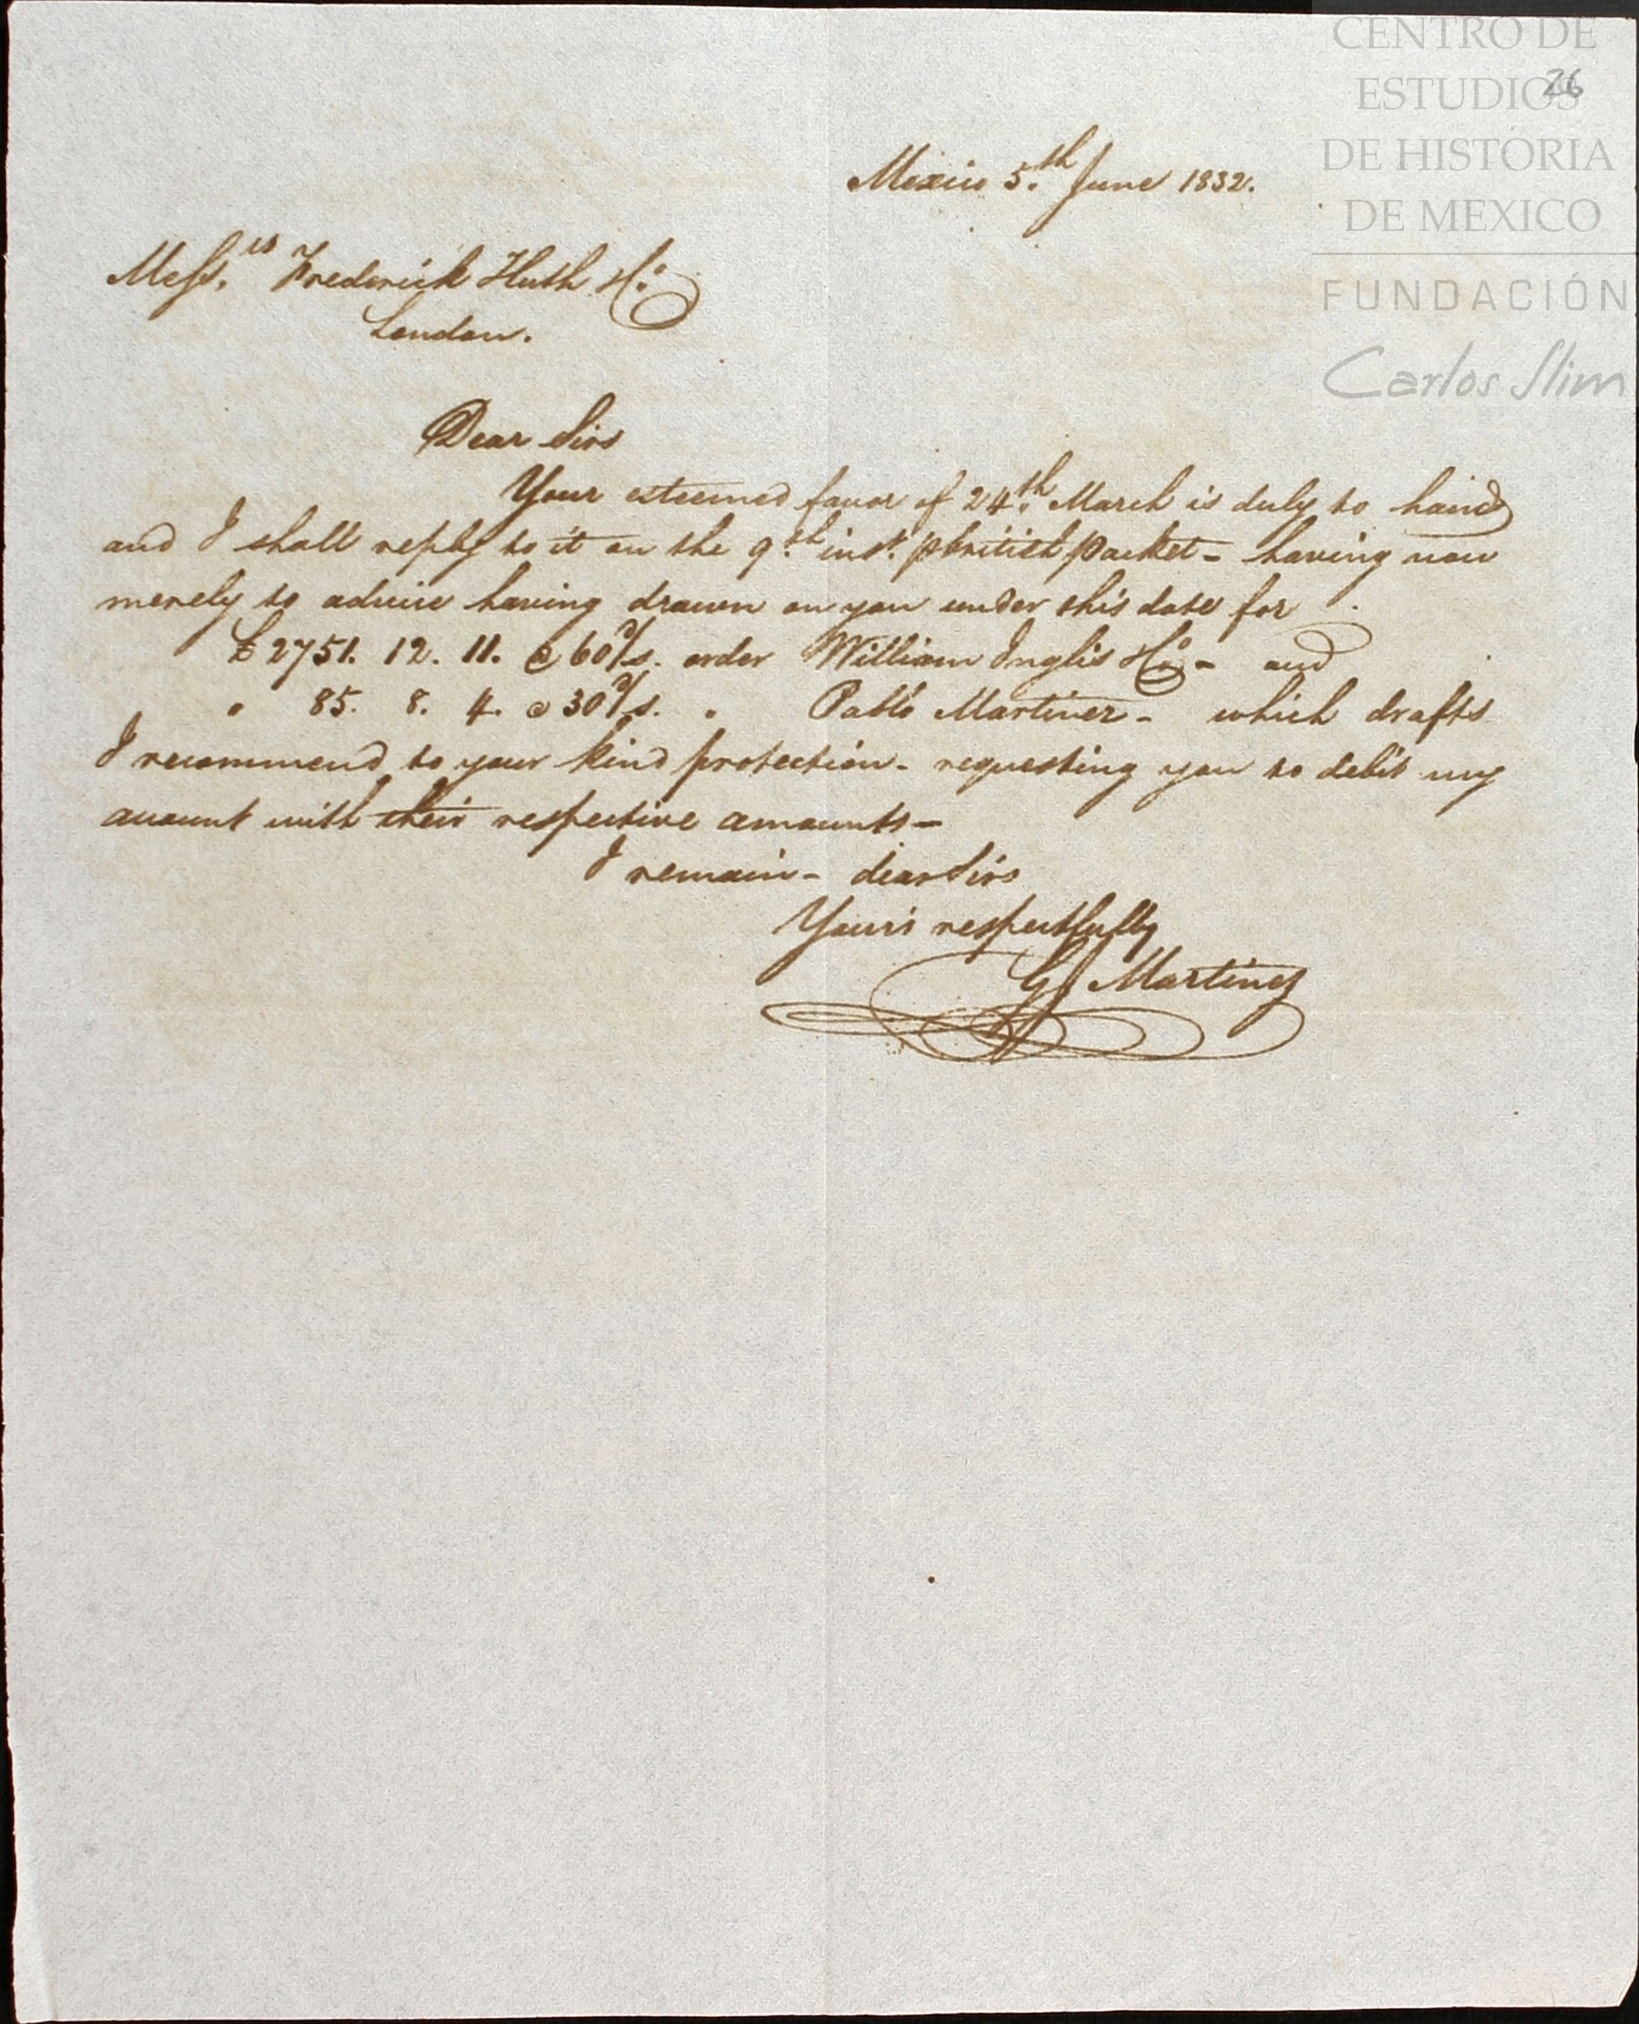 CENTRO DE
ESTUDIOS
DE HISTORIA
DE MEXICO
FUNDACIÓN
Carlos Slim
26
Mexico 5.th June 1832.
Mess.rs Frederick Huth & Co.
London.
Dear Sirs
Your esteemed favor of 24th. March is duly to hand
and I shall reply to it on the 9.th inst. p british packet - having now
merely to advice having drawn on you under this date for
£ 2751. 12. 11. @ 60 d/s. order William Inglis & Co - and
" 85. 8. 4. @ 30 d/s. " Pablo Martinez - which drafts
I recommend to your kind protection - requesting you to debit my
account with their respective amounts -
I remain - dear Sirs
Your's respectfully
G J Martinez